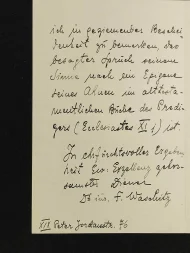 ich in gegebener Beschei-
denheit zu bemerken, das
besagter Spruch seinem
Sinne nach ein Epigone
seines Ahnen im alttesta-
mentlichen Buche des Predi-
gers (Ecclesiastes XI 1) ist.
In ehrfurchtsvoller Ergeben-
heit Euer Exzellenz gehor-
samster Diener
Dr F.
XIX Peter Jordanstr. 76